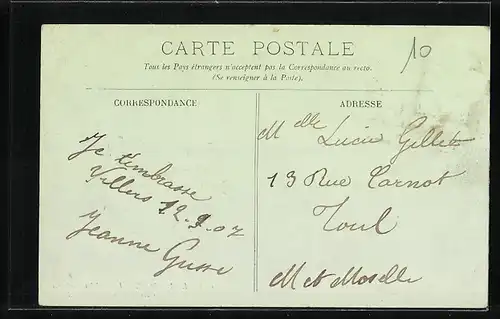 CARTE POSTALE
10
Tous les Pays étrangers n'acceptent pas la Correspondance au recto.
(Se renseigner à la Poste).
CORRESPONDANCE
Je t'embrasse
Villers 12.9.07
Jeanne
ADRESSE
Melle Lucie Gillet
13 Rue Carnot
Toul
M et Moselle